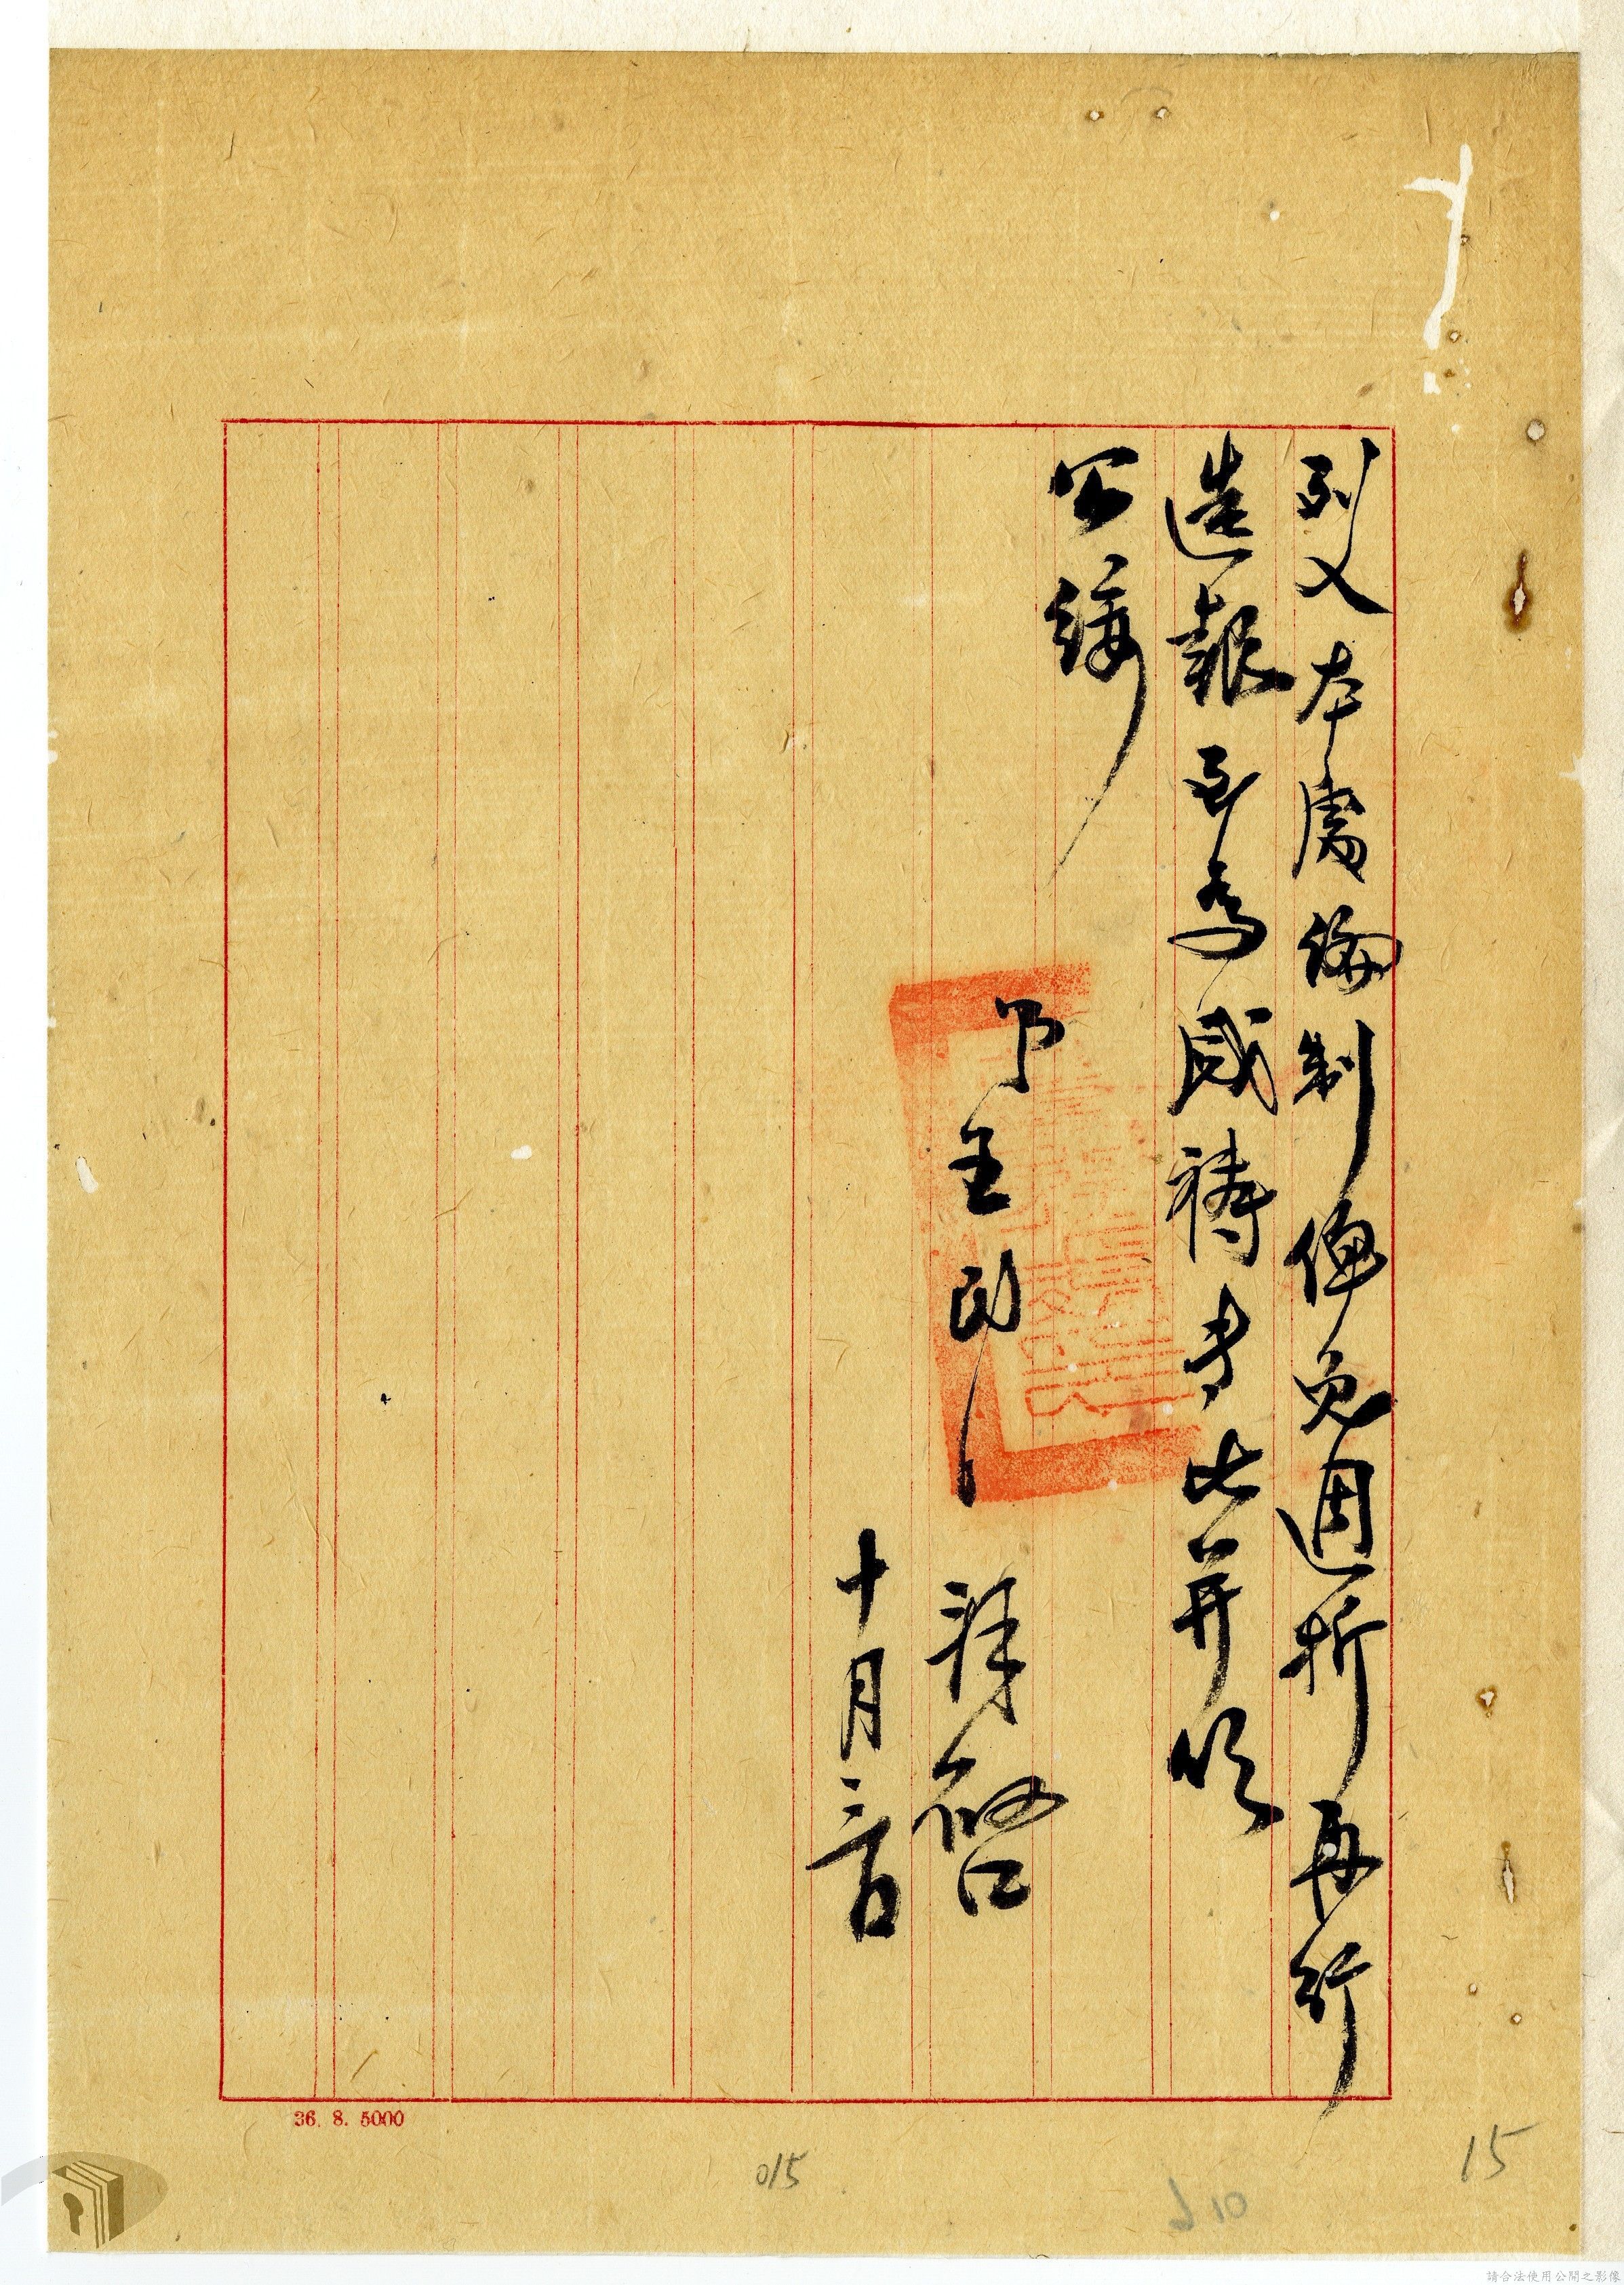 列入本處編制俾免週折再行
造報至為感禱専此并頌
公綏
弟 王民 拜啓
十月三日
36. 8. 5000
015
15
請合法使用公開之影像